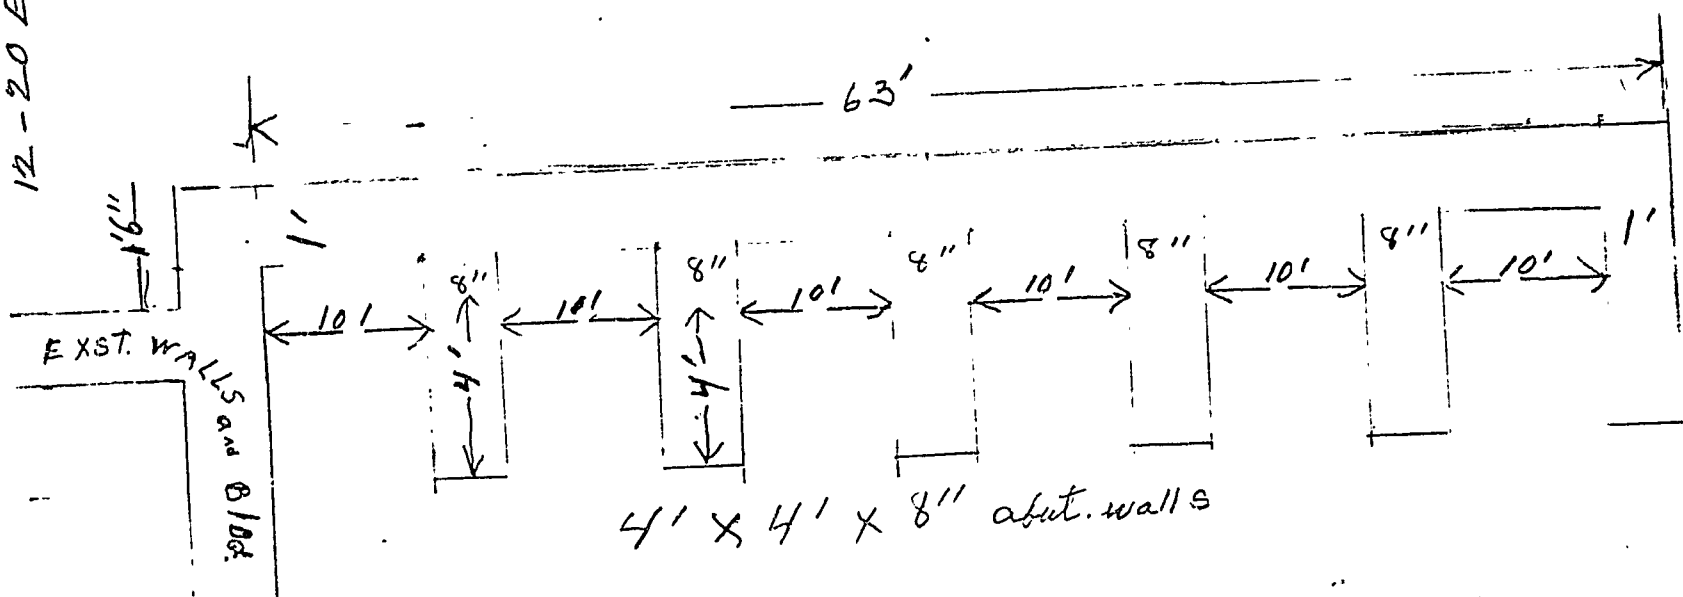 12-20
63'
1'6"
1'
8"
8"
8"
8"
8"
1'
10'
10'
10'
10'
10'
10'
4'
4'
EXST. WALLS and Bldg.
4' X 4' X 8" abut. walls